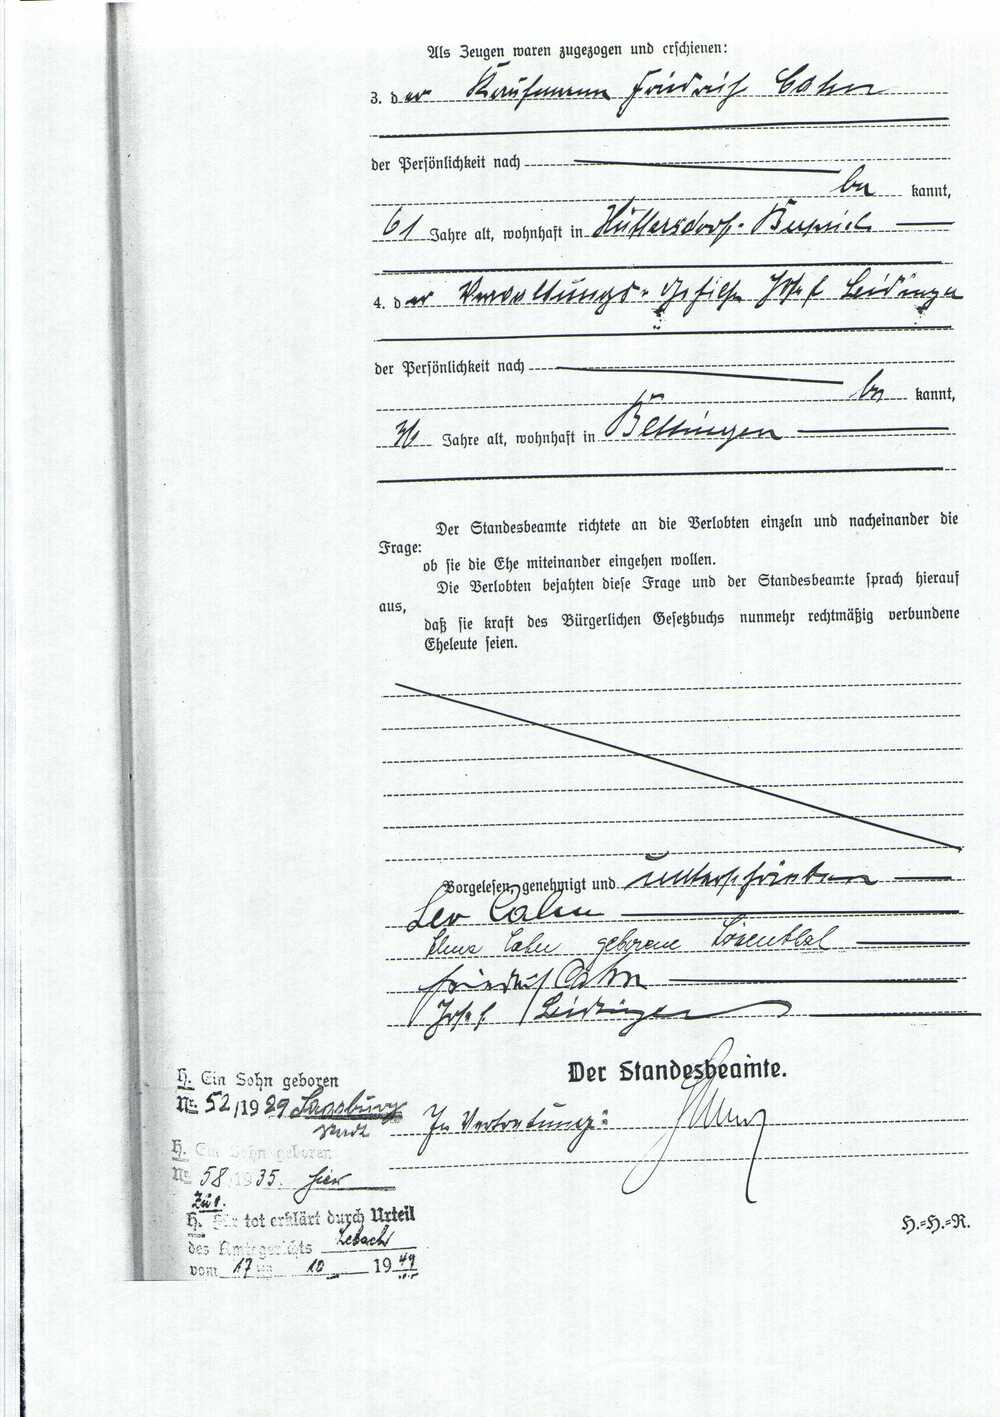 Als Zeugen waren zugezogen und erschienen:
3. der Kaufmann Friedrich Cahn
der Persönlichkeit nach
be kannt,
61 Jahre alt, wohnhaft in Hüttersdorf-Buprich
4. der Verwaltungs-Gehilfe Josef Leidinger
der Persönlichkeit nach
be kannt,
36 Jahre alt, wohnhaft in Bettingen
Der Standesbeamte richtete an die Verlobten einzeln und nacheinander die
Frage:
ob sie die Ehe miteinander eingehen wollen.
Die Verlobten bejahten diese Frage und der Standesbeamte sprach hierauf
aus,
daß sie kraft des Bürgerlichen Gesetzbuchs nunmehr rechtmäßig verbundene
Eheleute seien.
Vorgelesen, genehmigt und unterschrieben
Leo Cahn
Cahn geborene Rosenthal
Friedrich Cahn
Josef Leidinger
Der Standesbeamte.
In Vertretung:
H. Ein Sohn geboren
Nr. 52/1929 Saarburg
Stadt
H. Ein Sohn geboren
Nr. 58/1935. hier
Zu 1.
H. Für tot erklärt durch Urteil
des Amtsgerichts Lebach
vom 17 10 1949
H.-H.-R.